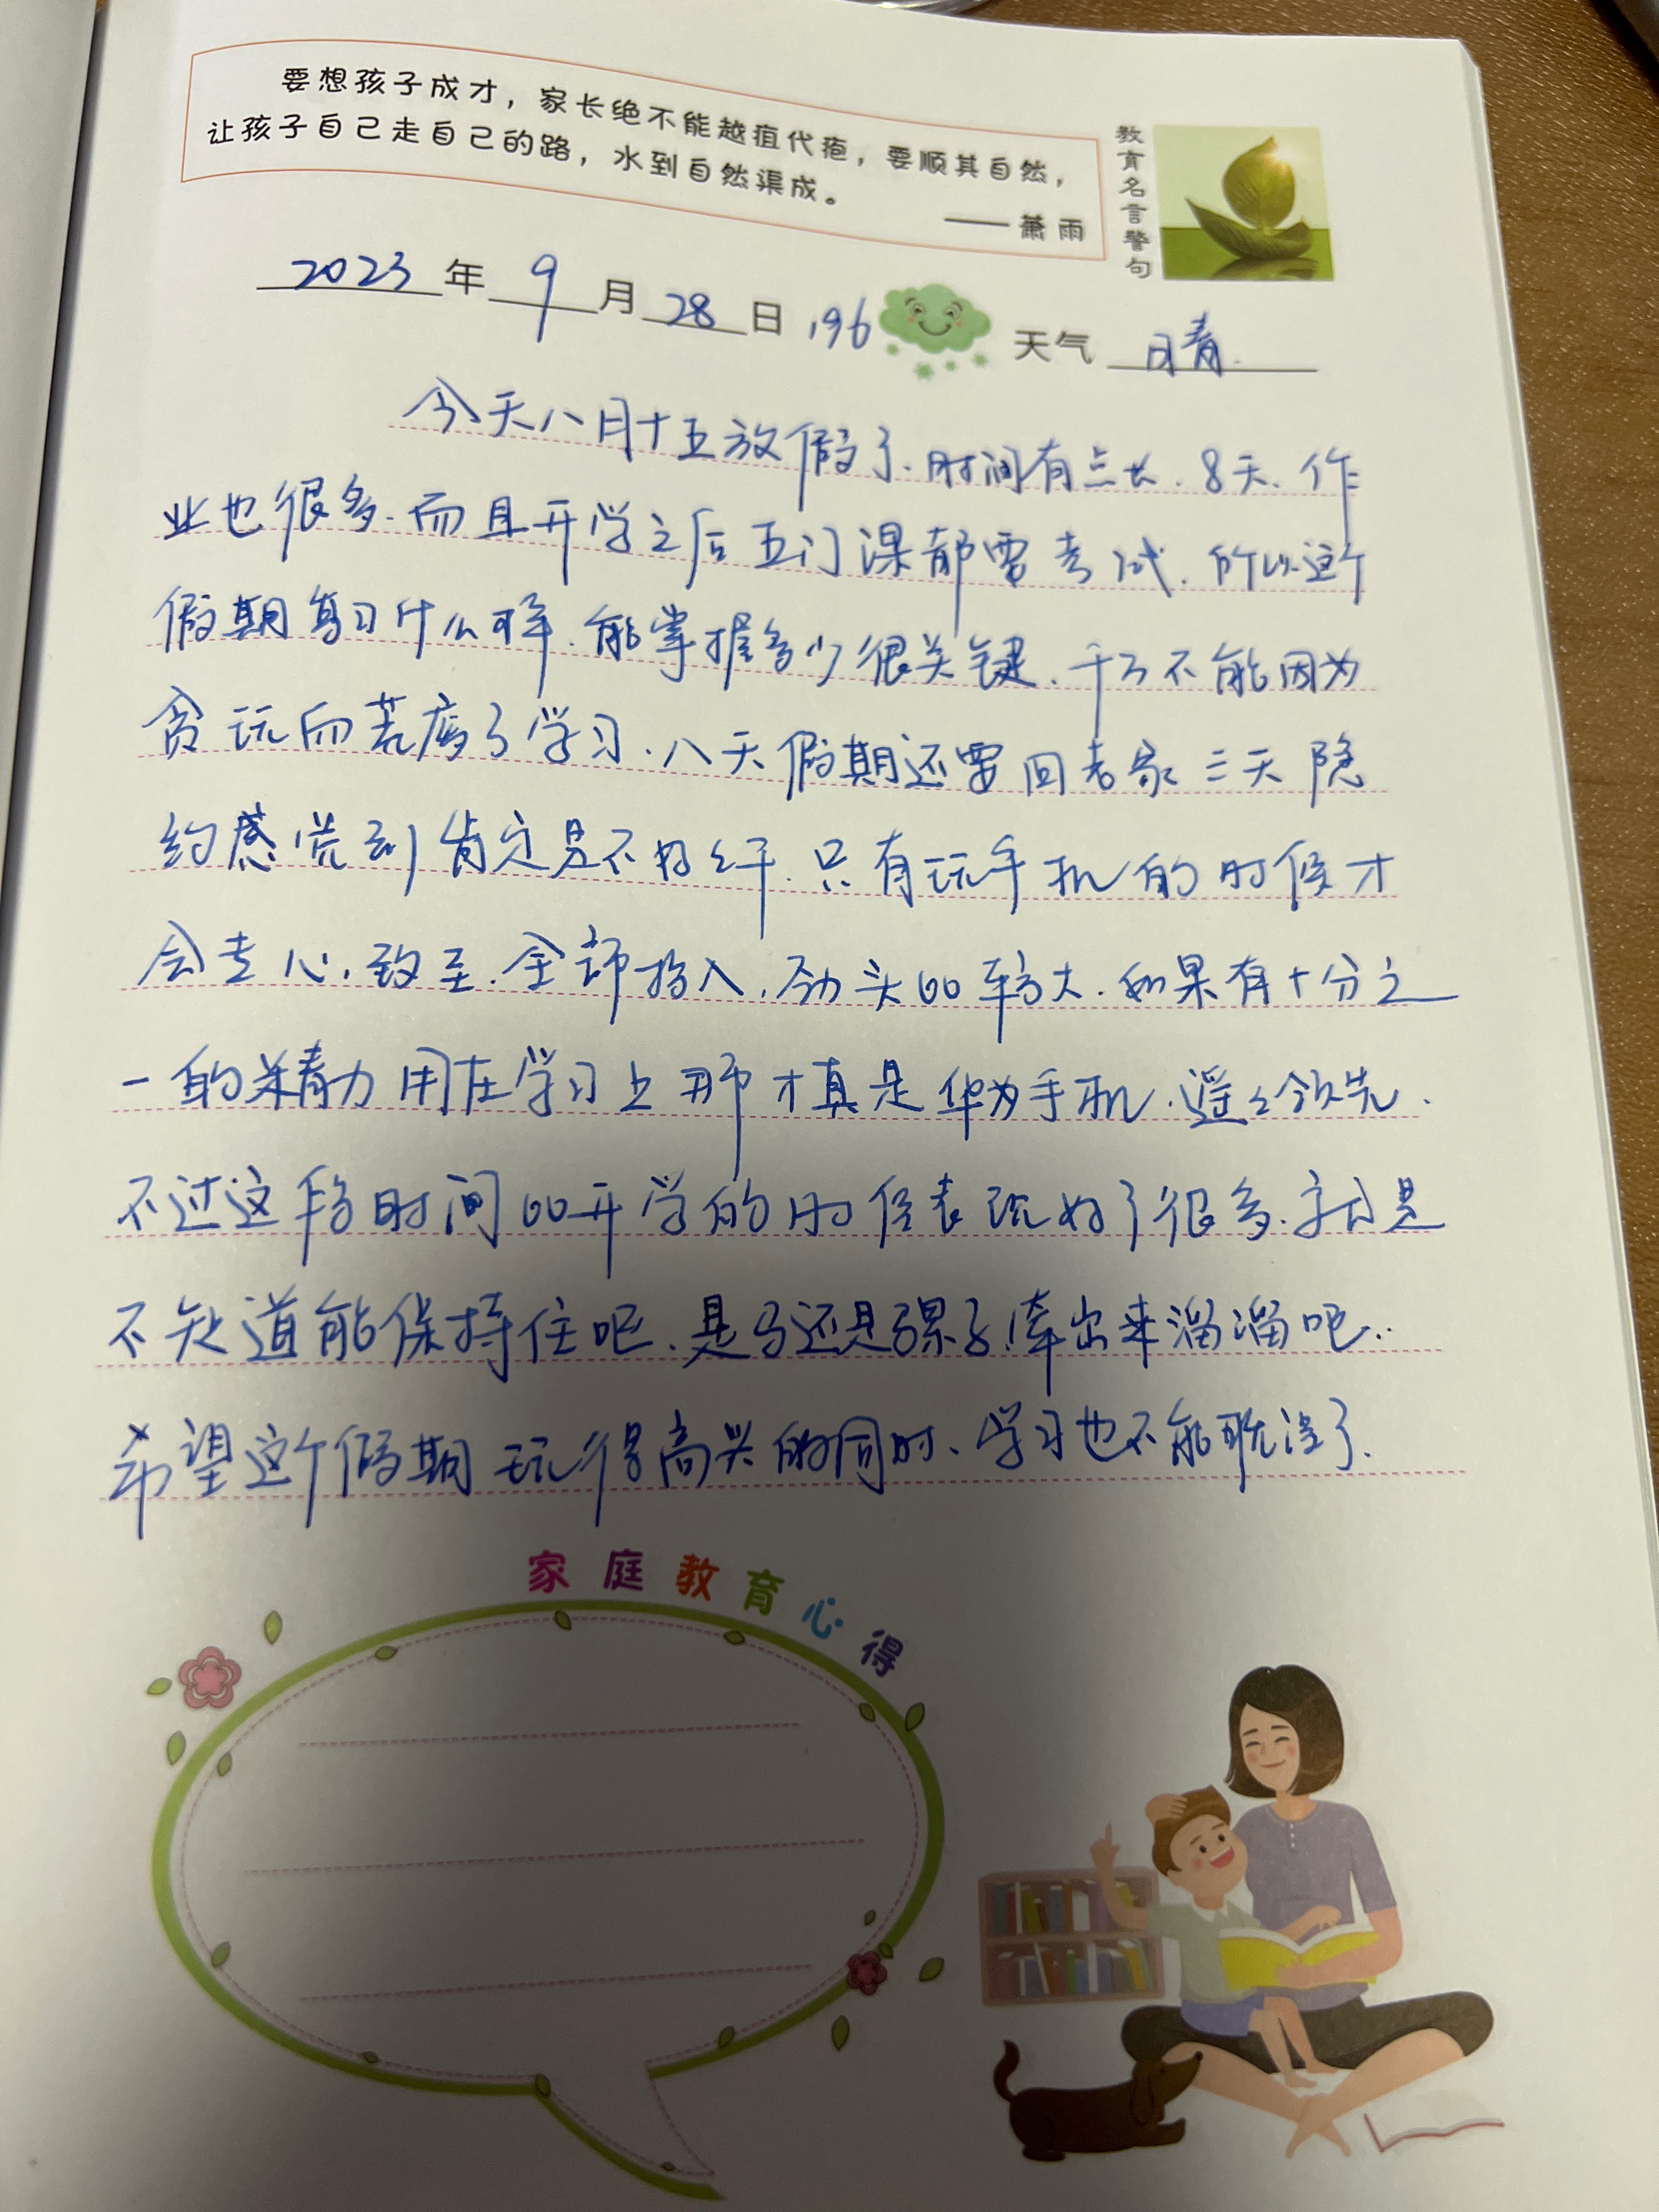 要想孩子成才，家长绝不能越疽代疱，要顺其自然，
让孩子自己走自己的路，水到自然渠成。
——萧雨
教育名言警句
2023年9月28日 196 天气 晴.
今天八月十五放假了.时间有点长.8天.作
业也很多.而且开学之后五门课都需考试.所以这个
假期复习什么样.能掌握多少很关键.千万不能因为
贪玩而荒废了学习.八天假期还要回老家三天隐
约感觉到肯定是不好干.只有玩手机的时候才
会走心.致至.全部投入.劲头比较大.如果有十分之
一的精力用在学习上那才真是华为手机.遥遥领先.
不过这段时间比开学的时候表现好了很多.就是
不知道能保持住吧.是马还是骡子牵出来溜溜吧..
希望这个假期玩得高兴的同时、学习也不能耽误了.
家庭教育心得